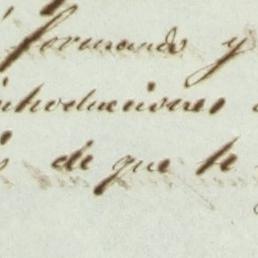 formando y
introducciones
de que te